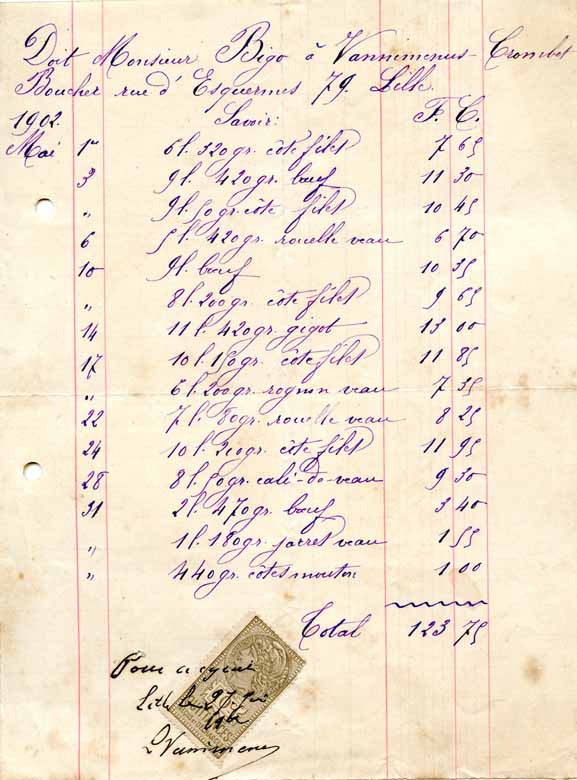 Doit Monsieur Bigo à Vannimenus-Crombet
Boucher rue d'Esquermes 79. Lille.
1902. Savoir: F. C.
Mai 1er 6l. 320gr. côte filet 7 65
3 9l. 420gr. bœuf 11 30
" 9l. 50gr. côte filet 10 45
6 5l. 420gr. rouelle veau 6 70
10 9l. bœuf 10 35
" 8l. 200gr. côte filet 9 65
14 11l. 420gr. gigot 13 00
17 10l. 150gr. côte filet 11 85
" 6l. 200gr. rognon veau 7 35
22 7l. 80gr. rouelle veau 8 25
24 10l. 210gr. côte filet 11 95
28 8l. 50gr. veau 9 30
31 2l. 470gr. bœuf 3 40
" 1l. 180gr. jarret veau 1 55
" 440gr. côtes mouton 1 00
Total 123 75
Pour acquit
Lille le 27
Vannimenus